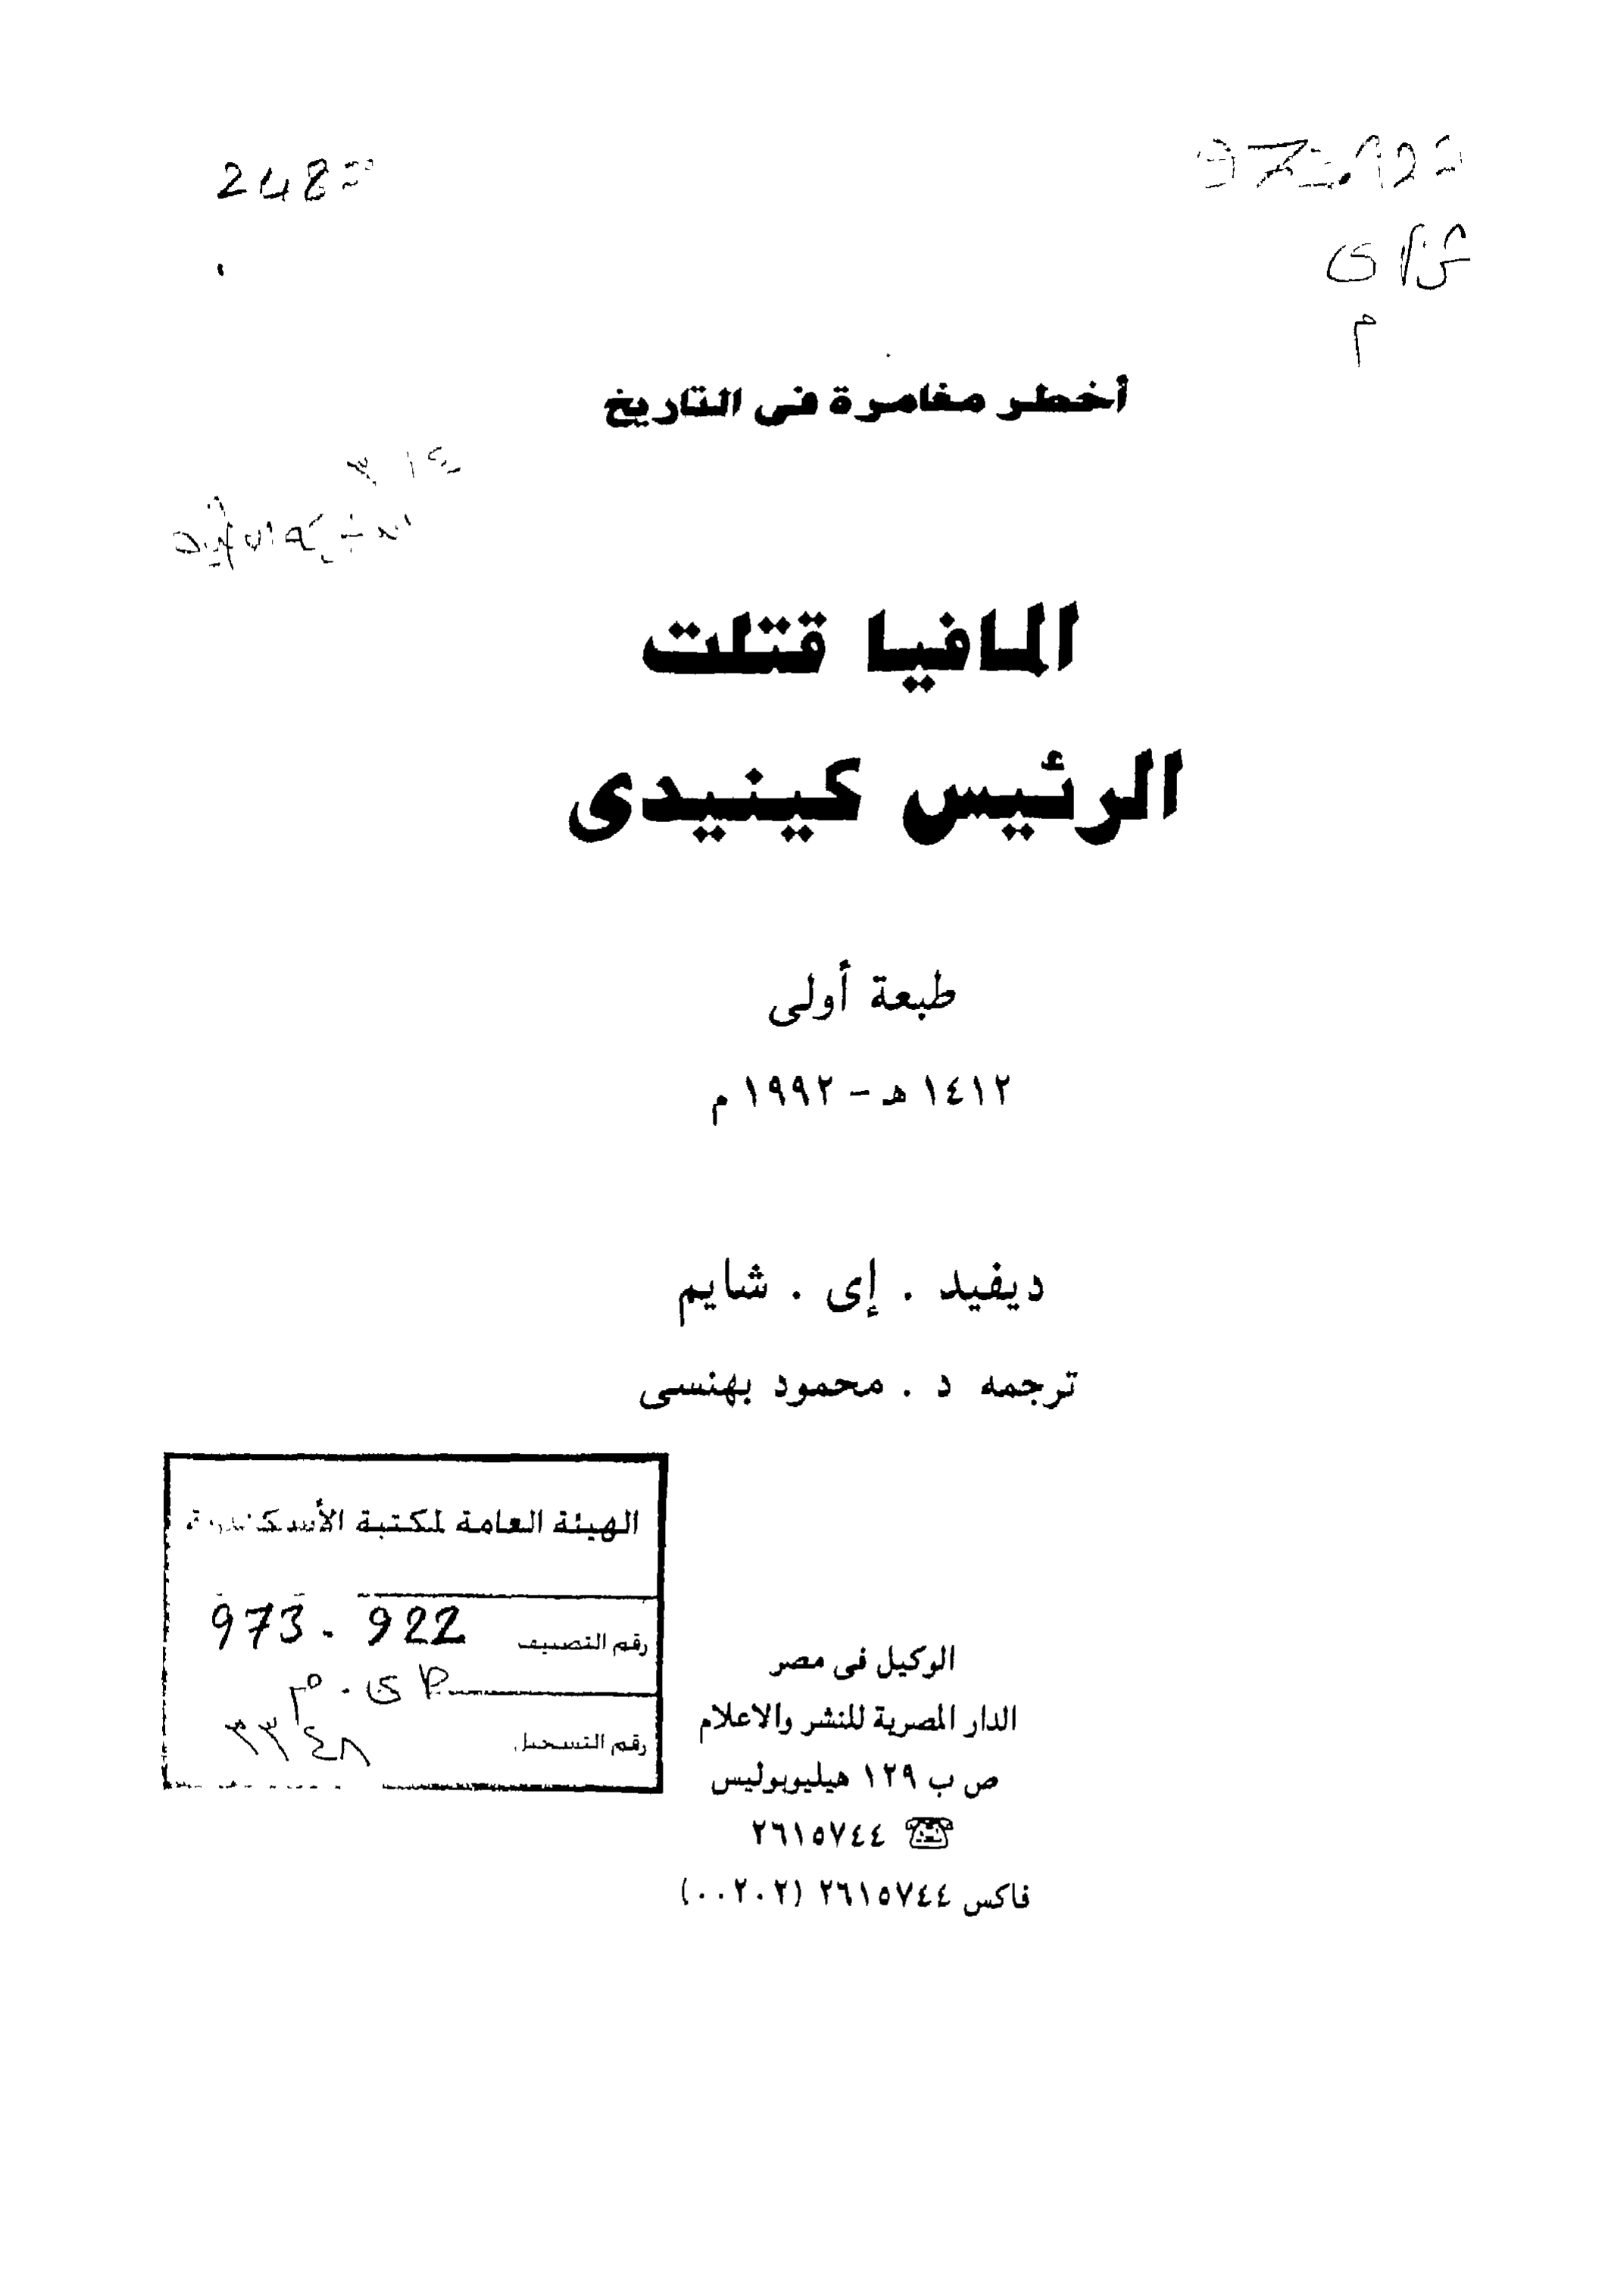 973.922
شاى
م
أخطر مغامرة فى التاريخ
٣١٤
المافيا قتلت
الرئيس كينيدى
طبعة أولى
١٤١٢ هـ - ١٩٩٢ م
ديفيد . إى . شايم
ترجمه د . محمود بهنسى
الهيئة العامة لمكتبة الأسكندرية
رقم التصنيف 973.922
رقم التسجيل ٣٣٤٨
الوكيل فى مصر
الدار المصرية للنشر والاعلام
ص ب ١٢٩ هيليوبوليس
☏ ٢٦١٥٧٤٤
فاكس ٢٦١٥٧٤٤ (٠٠٢٠٢)